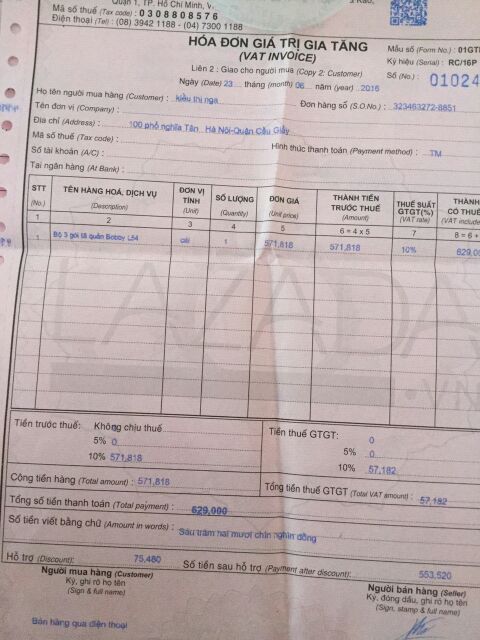 Quận 1, TP. Hồ Chí Minh, V
Mã số thuế (Tax code) : 0308808576
Điện thoại (Tel) : (08) 3942 1188 - (04) 7300 1188
HÓA ĐƠN GIÁ TRỊ GIA TĂNG
(VAT INVOICE)
Liên 2 : Giao cho người mua (Copy 2: Customer)
Ngày (Date) 23 tháng (month) 06 năm (year) 2016
Mẫu số (Form No.) : 01GT
Ký hiệu (Serial) : RC/16P
Số (No.) : 01024
Họ tên người mua hàng (Customer) : kiều thị nga
Đơn hàng số (S.O.No.) : 323463272-8851
Tên đơn vị (Company) :
Địa chỉ (Address) : 100 phố nghĩa Tân Hà Nội-Quận Cầu Giấy
Mã số thuế (Tax code) :
Hình thức thanh toán (Payment method) : TM
Số tài khoản (A/C) :
Tại ngân hàng (At Bank) :
STT (No.) TÊN HÀNG HOÁ, DỊCH VỤ (Description) ĐƠN VỊ TÍNH (Unit) SỐ LƯỢNG (Quantity) ĐƠN GIÁ (Unit price) THÀNH TIỀN TRƯỚC THUẾ (Amount) THUẾ SUẤT GTGT(%) (VAT rate) THÀNH CÓ THUẾ (VAT include
1 2 3 4 5 6 = 4 x 5 7 8 = 6 +
1 Bộ 3 gói tã quần Bobby L54 cái 1 571,818 571,818 10% 629,0
LAZADA
.VN
Tiền trước thuế: Không chịu thuế 0
5% 0
10% 571,818
Tiền thuế GTGT: 0
5% 0
10% 57,182
Cộng tiền hàng (Total amount) : 571,818
Tổng tiền thuế GTGT (Total VAT amount) : 57,182
Tổng số tiền thanh toán (Total payment) : 629,000
Số tiền viết bằng chữ (Amount in words) : Sáu trăm hai mươi chín nghìn đồng
Hỗ trợ (Discount): 75,480
Số tiền sau hỗ trợ (Payment after discount): 553,520
Người mua hàng (Customer)
Ký, ghi rõ họ tên
(Sign & full name)
Người bán hàng (Seller)
Ký, đóng dấu, ghi rõ họ tên
(Sign, stamp & full name)
Bán hàng qua điện thoại